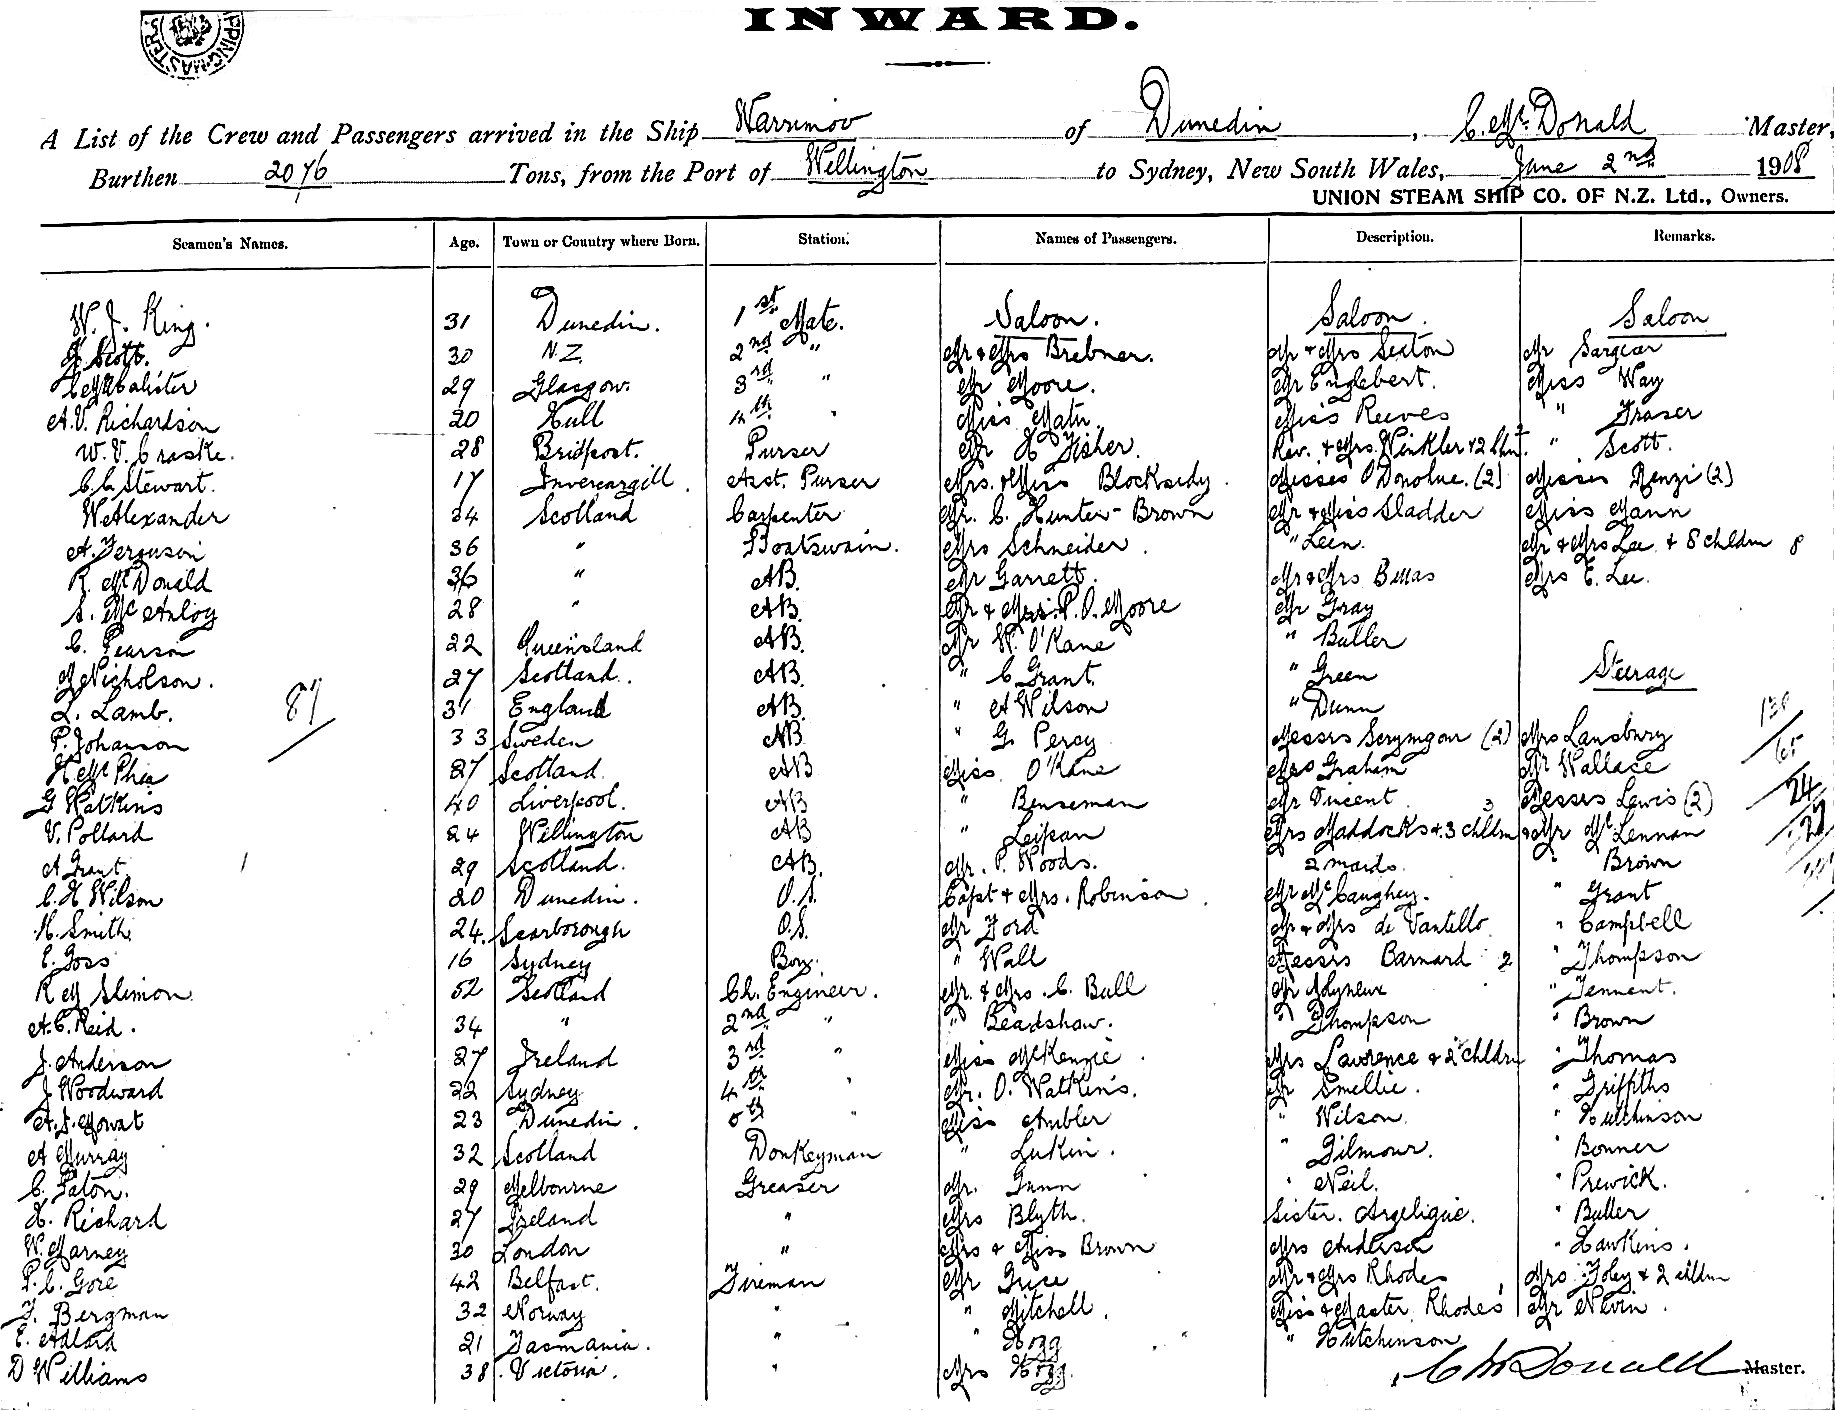 SHIPPING MASTER'S
INWARD.
A List of the Crew and Passengers arrived in the Ship Warrimoo of Dunedin, C. McDonald Master,
Burthen 2076 Tons, from the Port of Wellington to Sydney, New South Wales, June 2nd 1908
UNION STEAM SHIP CO. OF N.Z. Ltd., Owners.
Seamen's Names. Age. Town or Country where Born. Station. Names of Passengers. Description. Remarks.
W. J. King. 31 Dunedin. 1st Mate. Saloon. Saloon. Saloon
Scott. 30 N.Z. 2nd " Mr & Mrs Brebner. Mr & Mrs Sexton Mr Sargear
C McAlister 29 Glasgow. 3rd " Mr Moore. Mr Englebert. Miss Way
A.V. Richardson 20 Hull 4th " Miss Reeves " Fraser
W. V. Craske. 28 Bridport. Purser Mr H Fisher. Rev. & Mrs. Winkler & 2 Chn. " Scott.
C C Stewart. 17 Invercargill. Asst. Purser Mrs. & Miss Blocksidy. Misses O'Donohue. (2) Misses Renzi (2)
W Alexander 24 Scotland Carpenter Mr. C. Hunter-Brown Mr & Miss Sladder Miss Mann
A. Ferguson 36 " Boatswain. Mrs Schneider. " Leen. Mr & Mrs Lee & 8 Chldrn 8
R. McDonald 36 " AB. Mr Garrett. Mr & Mrs Mrs E. Lee.
S. McAuloy 28 " AB. Mr & P. O. Moore Mr Gray
C. Pearson 22 Queensland AB. Mr W. O'Kane " Buller
M Nicholson. 27 Scotland. AB. " C Grant. " Green Steerage
L. Lamb. 31 England AB. " A Wilson " Dunn
87
P. Johanson 33 Sweden AB " G. Percy Messrs Scrymgour (2) Mrs Lansbury
H McPhea 27 Scotland. AB Miss O'Kane Mrs Graham Mr Wallace
G Watkins 40 Liverpool. AB " Benseman Mr Vincent Messrs Lewis (2) 24
V. Pollard 24 Wellington AB " Leipan Mrs Maddocks & 3 Chldrn & Mr McLennan
A Grant 29 Scotland. AB. Mr. P. Woods. 2 maids. " Brown
C. H Wilson 20 Dunedin. O.S. Capt & Mrs. Robinson Mr McCaughey. " Grant
H. Smith 24. Scarborough O.S. Mr Ford Mr & Mrs de Vantello " Campbell
E. Goss 16 Sydney Boy. " Wall Messrs Barnard 2 " Thompson
R M Slimon. 52 Scotland Ch. Engineer. Mr. & Mrs. C. Bull Mr Molyneux " Tennent.
A. C. Reid. 34 " 2nd " " Beadshaw. " Thompson " Brown
J. Anderson 27 Ireland 3rd " Miss McKenzie Mrs Lawrence & 2 chldrn " Thomas
J Woodward 22 Sydney 4th " Mr. O. Watkins. Mr Smellie. " Griffiths
A. J. Mowat 23 Dunedin. 5th " Miss Ambler " Wilson. " Hutchinson
A Murray 32 Scotland Donkeyman " Lukin. " Gilmour. " Bonner
C. Paton. 29 Melbourne Greaser Mr. Gunn " Neil. " Prewick.
H. Richard 27 Ireland " Mrs Blyth. Sister. Angelique. " Buller
W. Marney 30 London " Mrs & Miss Brown Mrs Anderson " Hawkins.
P. C. Gore 42 Belfast. Fireman Mr Guse Mr & Mrs Rhodes Mrs Foley & 2 chldrn
F. Bergman 32 Norway " " Mitchell. Miss & Master Rhodes Mr Nevin.
E. Adlard 21 Tasmania. " " Hogg " Hutchinson
D Williams 38. Victoria. " Mrs Hogg. C McDonald Master.